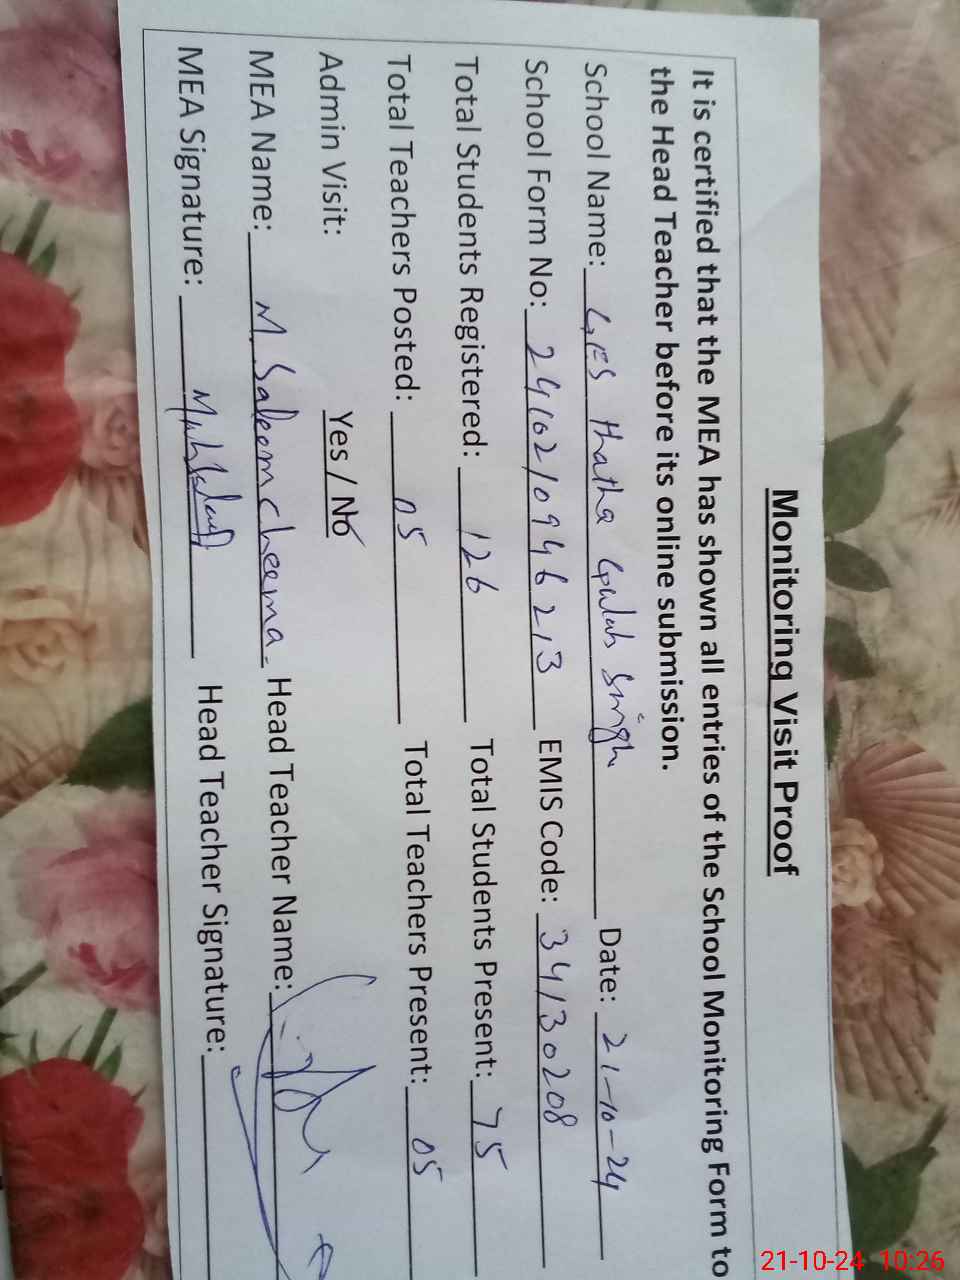 Monitoring Visit Proof
It is certified that the MEA has shown all entries of the School Monitoring Form to
the Head Teacher before its online submission.
School Name: GES Thatha Gulab Singh Date: 21-10-24
School Form No: 2410210946213 EMIS Code: 34130208
Total Students Registered: 126 Total Students Present: 75
Total Teachers Posted: 05 Total Teachers Present: 05
Admin Visit: Yes / No
MEA Name: M. Saleem cheema. Head Teacher Name:
MEA Signature: Head Teacher Signature:
21-10-24 10:26